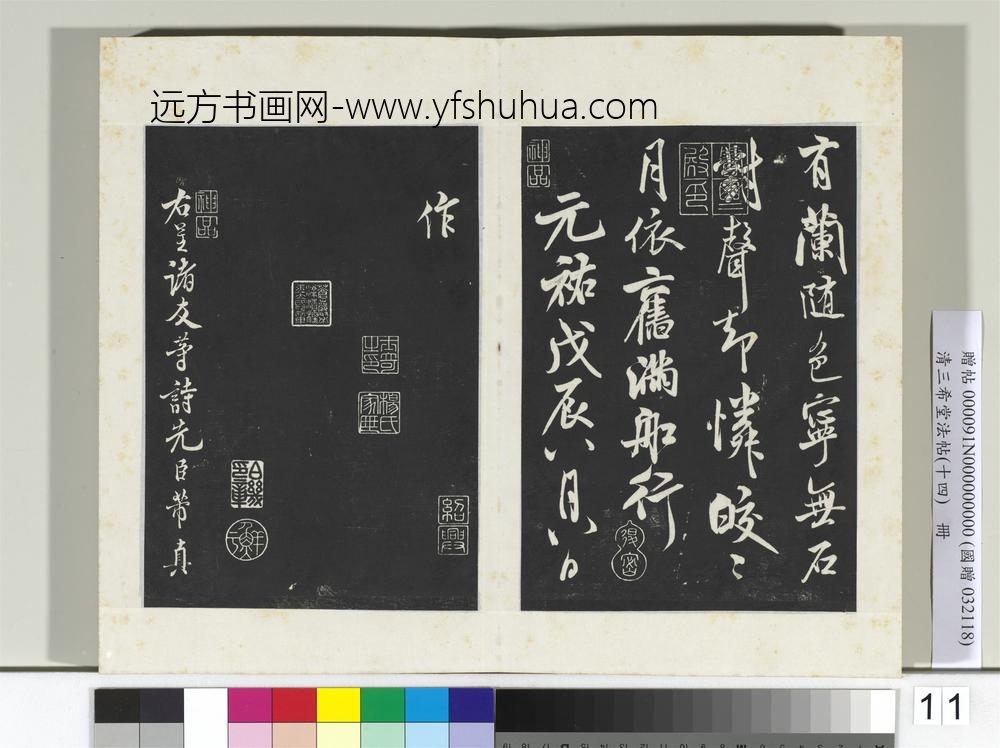 远方书画网-www.yfshuhua.com
有蘭随色寧無石
對聲却憐皎〻
月依舊滿船行
元祐戊辰八月八日
神品
作
紹興
楊氏家藏
神品
右呈諸友等詩先臣芾真
贈帖 000091N000000000 (國贈 032118)
清三希堂法帖(十四) 冊
11